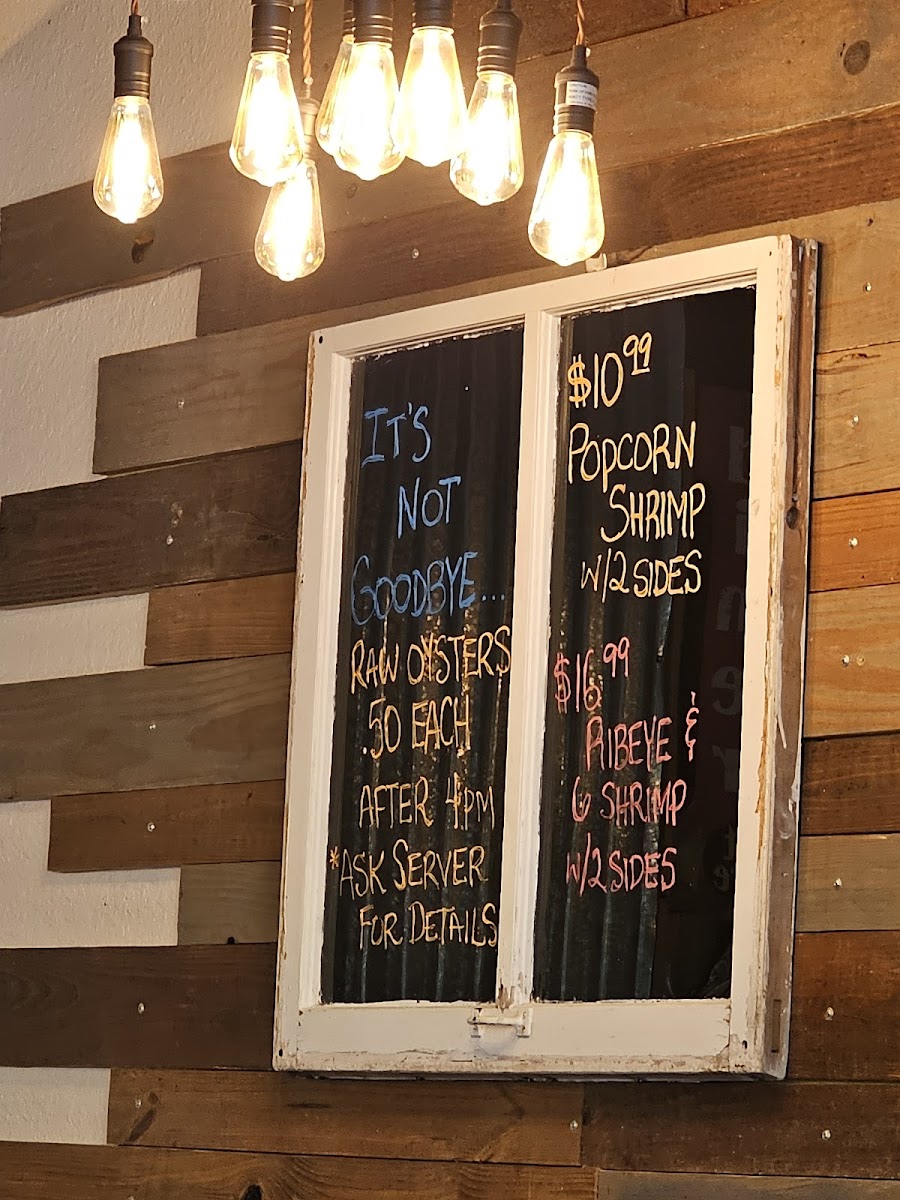 IT'S
NOT
GOODBYE...
RAW OYSTERS
.50 EACH
AFTER 4PM
*ASK SERVER
FOR DETAILS
$10.99
POPCORN
SHRIMP
W/2 SIDES
$16.99
RIBEYE &
6 SHRIMP
W/2 SIDES